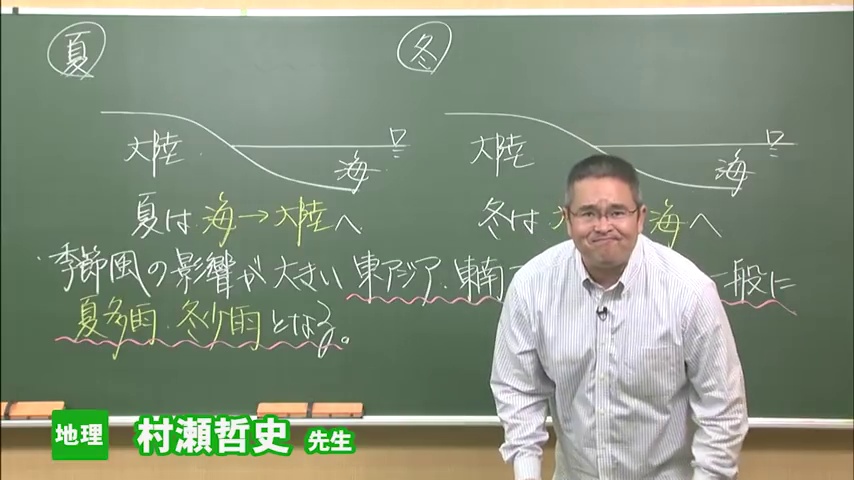 夏
冬
大陸 海
大陸 海
夏は 海→大陸へ
冬は 海へ
季節風の影響が大きい 東アジア、東南 一般に
夏多雨、冬少雨となる。
地理 村瀬哲史 先生